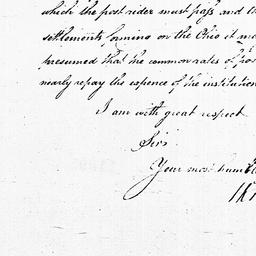 which the post rider must pass and th
settlements forming on the Ohio it ma
presumed that the common rates of pos
nearly repay the expence of the institution
I am with great respect
Sir
Your most humbl